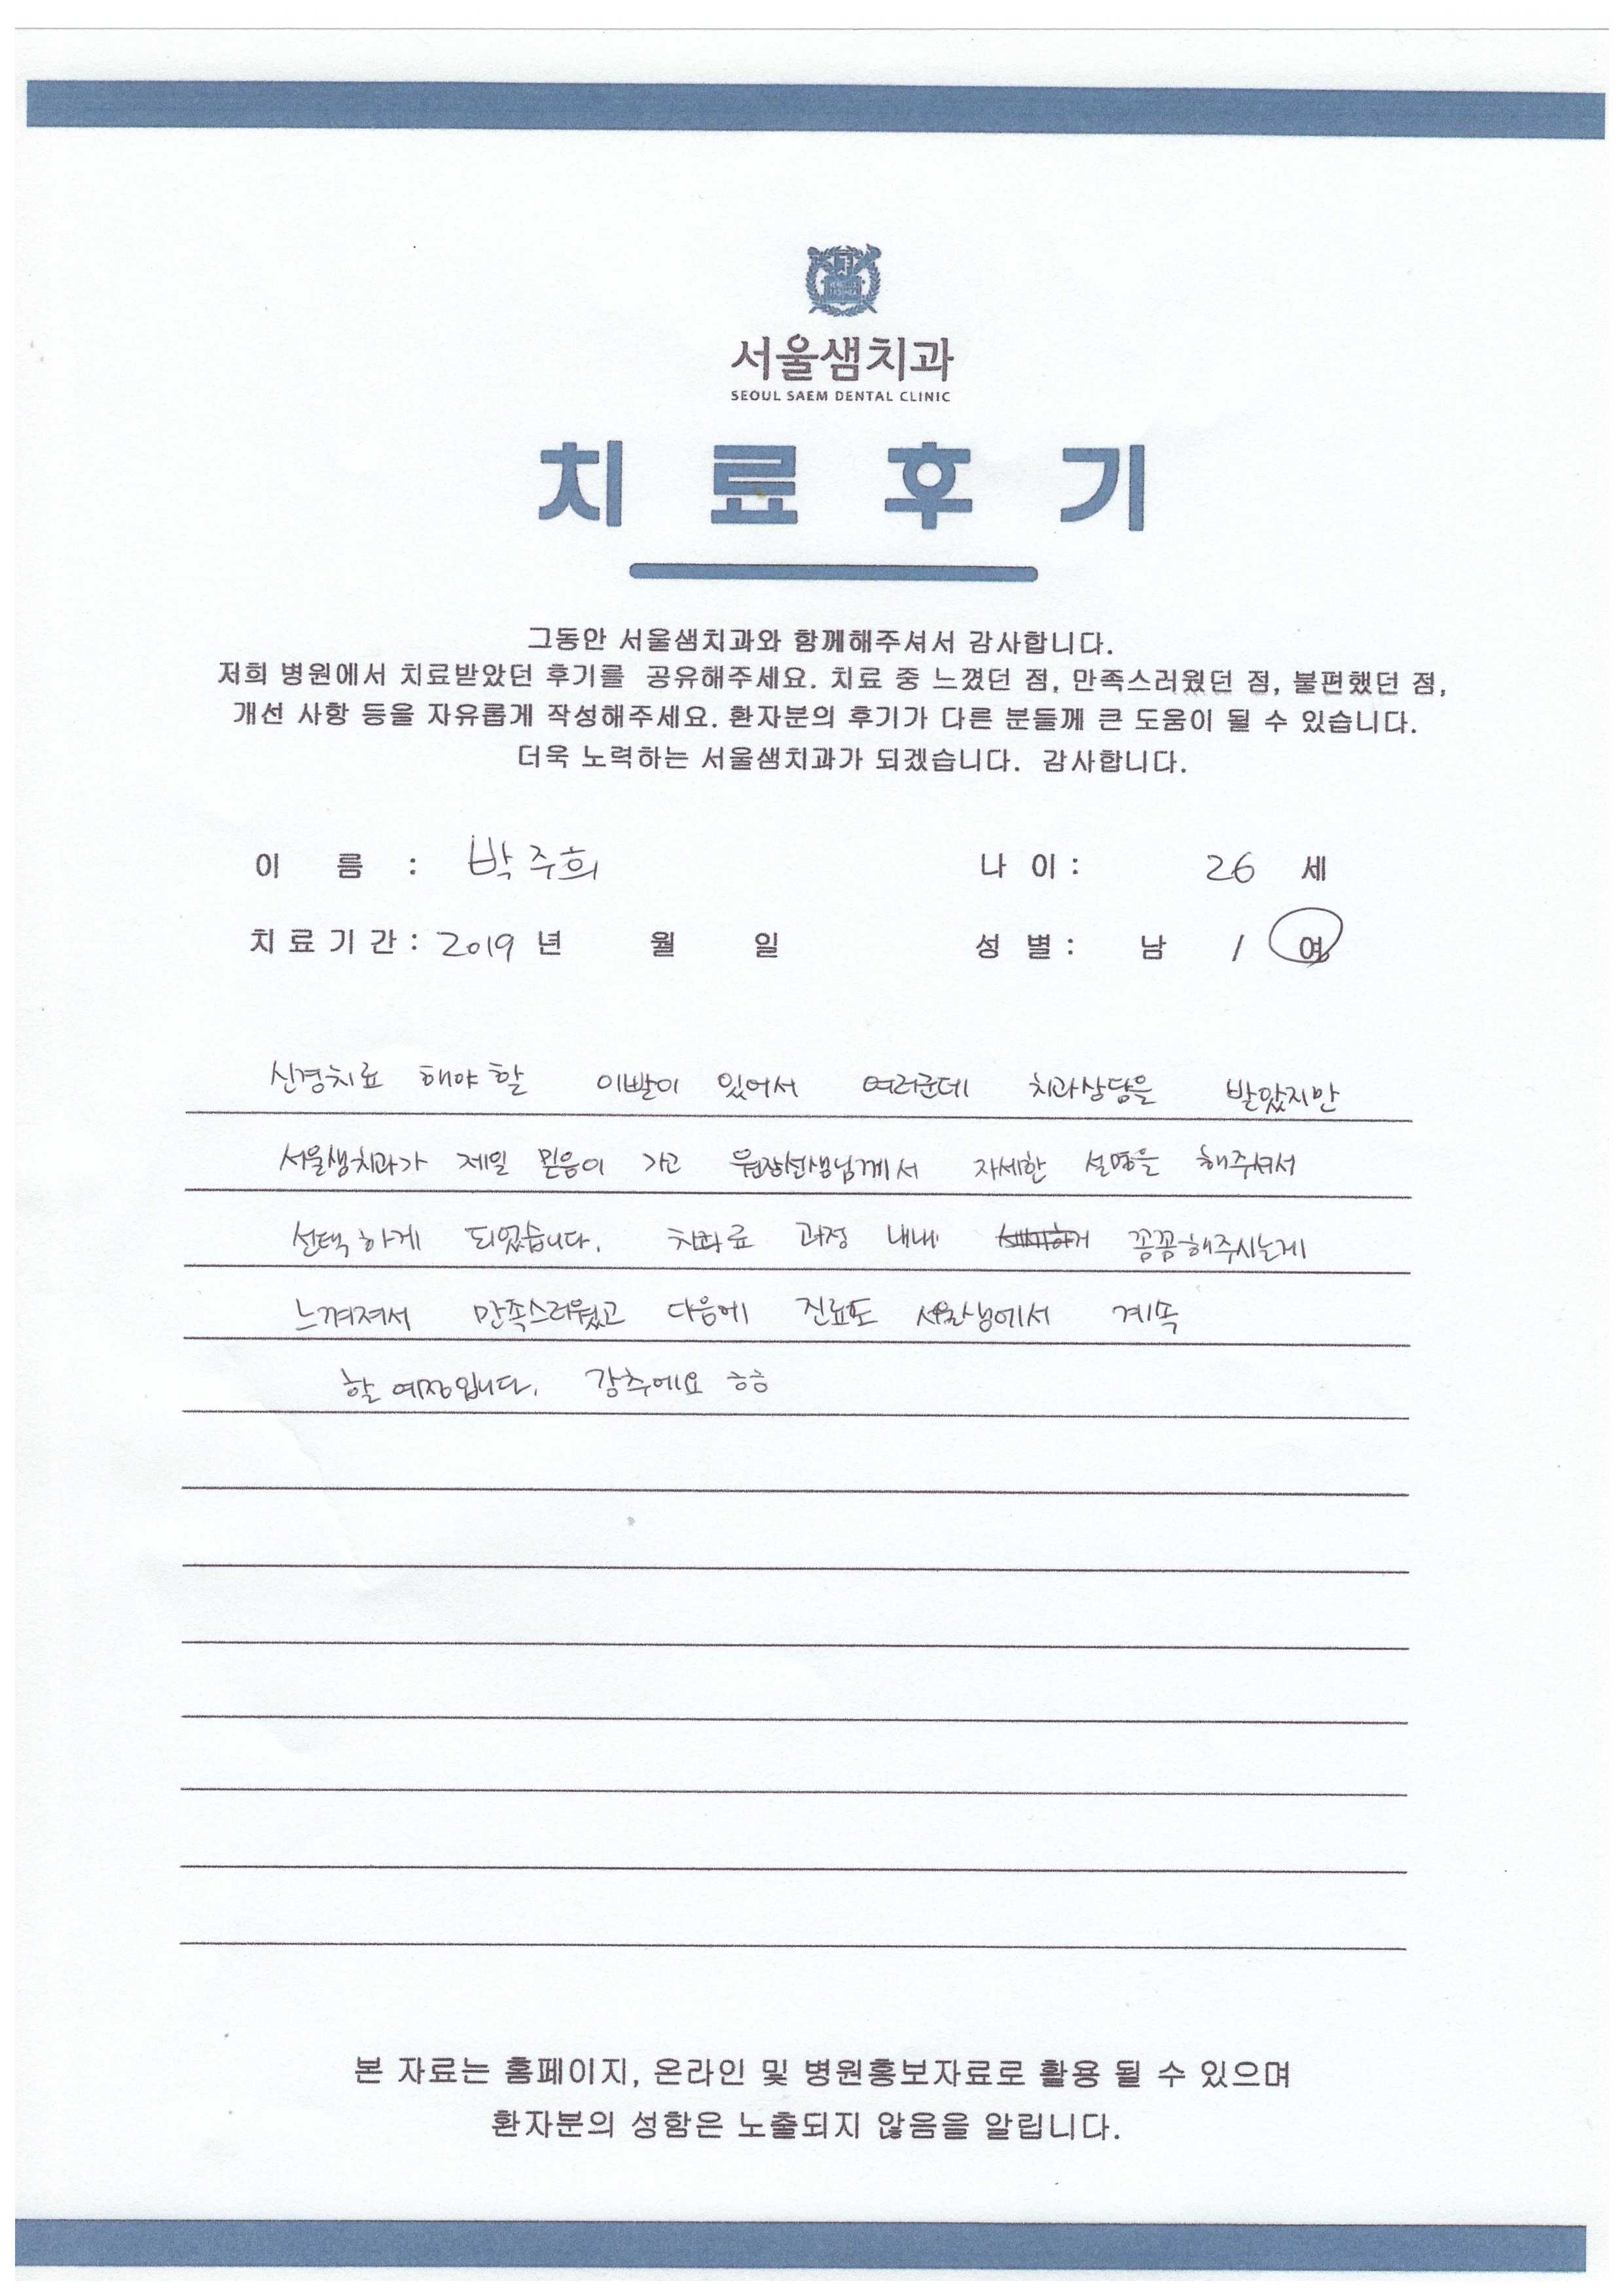 서울샘치과
SEOUL SAEM DENTAL CLINIC
치 료 후 기
그동안 서울샘치과와 함께해주셔서 감사합니다.
저희 병원에서 치료받았던 후기를 공유해주세요. 치료 중 느꼈던 점, 만족스러웠던 점, 불편했던 점,
개선 사항 등을 자유롭게 작성해주세요. 환자분의 후기가 다른 분들께 큰 도움이 될 수 있습니다.
더욱 노력하는 서울샘치과가 되겠습니다. 감사합니다.
이 름 : 박주희 나 이 : 26 세
치 료 기 간 : 2019 년 월 일 성 별 : 남 / 여
신경치료 해야 할 이빨이 있어서 여러군데 치과상담을 받았지만
서울샘치과가 제일 믿음이 가고 원장선생님께서 자세한 설명을 해주셔서
선택하게 되었습니다. 치료 과정 내내 꼼꼼해주시는게
느껴져서 만족스러웠고 다음에 진료도 서울샘에서 계속
할 예정입니다. 강추에요 ㅎㅎ
본 자료는 홈페이지, 온라인 및 병원홍보자료로 활용 될 수 있으며
환자분의 성함은 노출되지 않음을 알립니다.